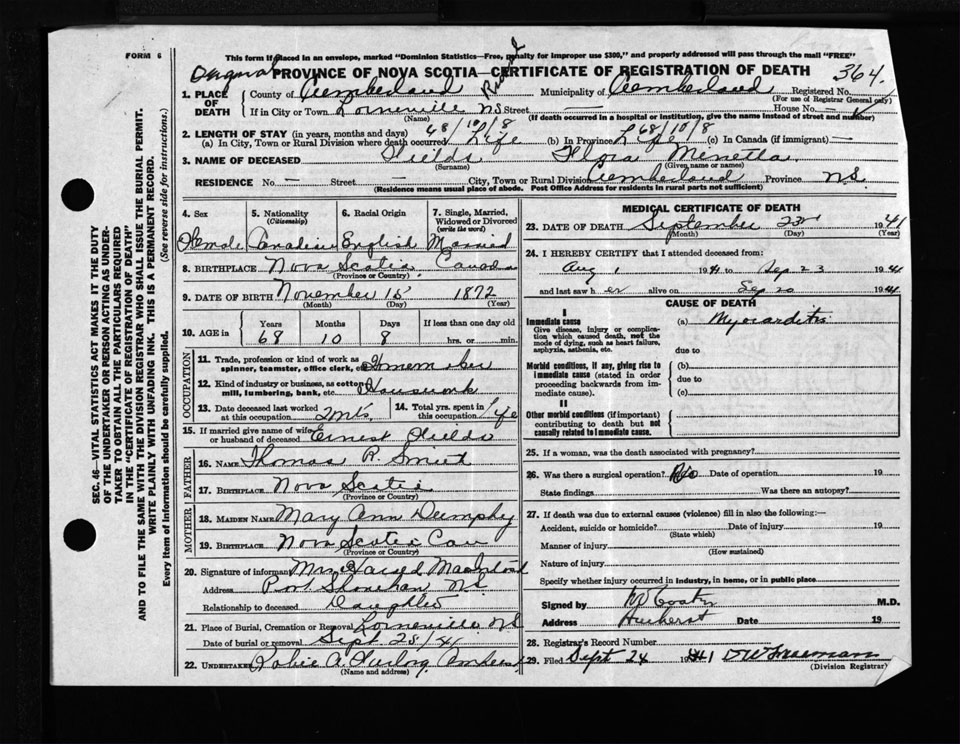 FORM 6
This form if placed in an envelope, marked "Dominion Statistics—Free, penalty for improper use $300," and properly addressed will pass through the mail "FREE"
Original PROVINCE OF NOVA SCOTIA—CERTIFICATE OF REGISTRATION OF DEATH 364
1. PLACE OF DEATH County of Cumberland Municipality of Cumberland Registered No.
(For use of Registrar General only)
If in City or Town Lorneville NS Street — House No. —
(Name) (If death occurred in a hospital or institution, give the name instead of street and number)
2. LENGTH OF STAY (in years, months and days) 68/10/8 68/10/8
(a) In City, Town or Rural Division where death occurred Life (b) In Province Life (c) In Canada (if immigrant) —
3. NAME OF DECEASED Fields Flora Minetta
(Surname) (Given name or names)
RESIDENCE No. — Street — City, Town or Rural Division Cumberland Province N.S.
(Residence means usual place of abode. Post Office Address for residents in rural parts not sufficient)
4. Sex 5. Nationality (Citizenship) 6. Racial Origin 7. Single, Married, Widowed or Divorced (write the word)
Female Canadian English Married
8. BIRTHPLACE Nova Scotia Canada
(Province or Country)
9. DATE OF BIRTH November 15 1872
(Month) (Day) (Year)
10. AGE in Years Months Days If less than one day old
68 10 8 hrs. or min.
OCCUPATION
11. Trade, profession or kind of work as spinner, teamster, office clerk, etc.
12. Kind of industry or business, as cotton mill, lumbering, bank, etc. Housework
13. Date deceased last worked at this occupation 2 mts 14. Total yrs. spent in this occupation Life
15. If married give name of wife or husband of deceased Ernest Fields
FATHER
16. NAME Thomas R.
17. BIRTHPLACE Nova Scotia
(Province or Country)
MOTHER
18. MAIDEN NAME Mary Ann Dumphy
19. BIRTHPLACE Nova Scotia Can
(Province or Country)
20. Signature of informant Mrs Harold MacIntosh
Address Port N.S.
Relationship to deceased Daughter
21. Place of Burial, Cremation or Removal Lorneville NS
Date of burial or removal Sept 25/41
22. UNDERTAKER A. Furlong Amherst
(Name and address)
MEDICAL CERTIFICATE OF DEATH
23. DATE OF DEATH September 23 1941
(Month) (Day) (Year)
24. I HEREBY CERTIFY that I attended deceased from:
Aug 1 1941 to Sep 23 1941
and last saw her alive on Sep 20 1941
CAUSE OF DEATH
I
Immediate cause (a) Myocarditis
Give disease, injury or complication which caused death, not the mode of dying, such as heart failure, asphyxia, asthenia, etc. due to
Morbid conditions, if any, giving rise to immediate cause (stated in order proceeding backwards from immediate cause). (b) due to (c)
II
Other morbid conditions (if important) contributing to death but not causally related to immediate cause.
25. If a woman, was the death associated with pregnancy?
26. Was there a surgical operation? No Date of operation 19
State findings Was there an autopsy?
27. If death was due to external causes (violence) fill in also the following:—
Accident, suicide or homicide? Date of injury 19
(State which)
Manner of injury
(How sustained)
Nature of injury
Specify whether injury occurred in industry, in home, or in public place
Signed by M.D.
Address Amherst Date 19
28. Registrar's Record Number
29. Filed Sept 24 1941
(Division Registrar)
SEC. 46—VITAL STATISTICS ACT MAKES IT THE DUTY
OF THE UNDERTAKER OR PERSON ACTING AS UNDER-
TAKER TO OBTAIN ALL THE PARTICULARS REQUIRED
IN THE "CERTIFICATE OF REGISTRATION OF DEATH"
AND TO FILE THE SAME WITH THE DIVISION REGISTRAR WHO SHALL ISSUE THE BURIAL PERMIT.
WRITE PLAINLY WITH UNFADING INK. THIS IS A PERMANENT RECORD.
Every item of information should be carefully supplied. (See reverse side for instructions).